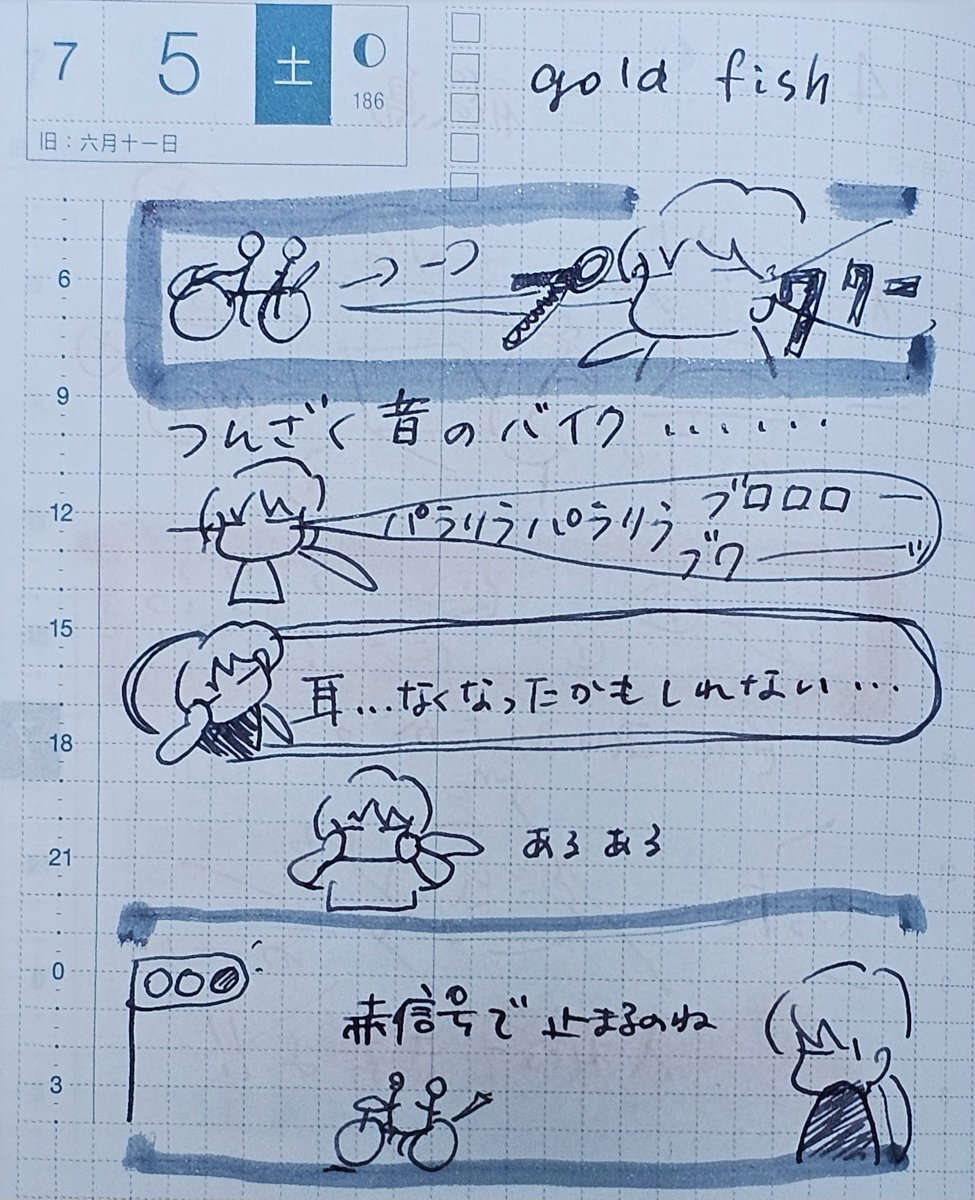 7 5 土
186
旧：六月十一日
gold fish
6
9
つんざく音のバイク......
12
パラリラパラリラ ブロロロー
ブワーッ
15
耳...なくなったかもしれない...
18
21
あるある
0
赤信号で止まるのね
3